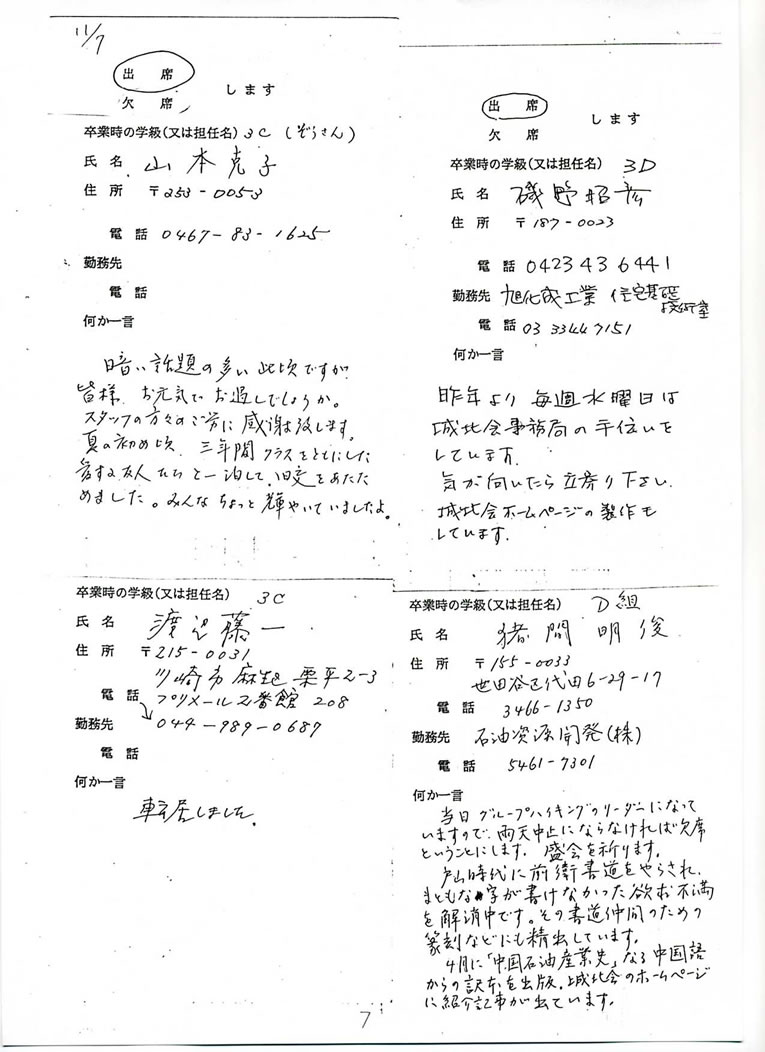 11/7
出 席
欠 席
します
卒業時の学級(又は担任名) 3C (ぞうさん)
氏 名 山本克子
住 所 〒253-0053
電 話 0467-83-1625
勤務先
電 話
何か一言
暗い話題の多い此頃ですが
皆様 お元気で お過しでしょうか。
スタッフの方々のご労に 感謝致します。
夏の初め頃 三年間 クラスをともにした
愛する友人たちと一泊して、旧交をあたた
めました。みんなちょっと輝やいていましたよ。
出 席
欠 席
します
卒業時の学級(又は担任名) 3D
氏 名 磯野昭彦
住 所 〒187-0023
電 話 0423 43 6441
勤務先 旭化成工業 住宅基礎
技術室
電 話 03 3344 7151
何か一言
昨年より 毎週水曜日は
城北会事務局の手伝いを
しています.
気が向いたら立寄り下さい.
城北会ホームページの製作も
しています.
卒業時の学級(又は担任名) 3C
氏 名 渡辺 一
住 所 〒215-0031
川崎市麻生区栗平2-3
プリメール2番館 208
電 話 044-989-0687
勤務先
電 話
何か一言
転居しました。
卒業時の学級(又は担任名) D組
氏 名 猪間明俊
住 所 〒155-0033
世田谷区代田6-29-17
電 話 3466-1350
勤務先 石油資源開発(株)
電 話 5461-7301
何か一言
当日 グループハイキングのリーダーになって
いますので、雨天中止にならなければ欠席
ということにします. 盛会を祈ります.
戸山時代に前衛書道をやらされ、
まともな字が書けなかった欲求不満
を解消中です。その書道仲間のための
篆刻などにも精出しています.
4月に「中国石油産業史」なる中国語
からの訳本を出版.城北会のホームページ
に紹介記事が出ています.
7